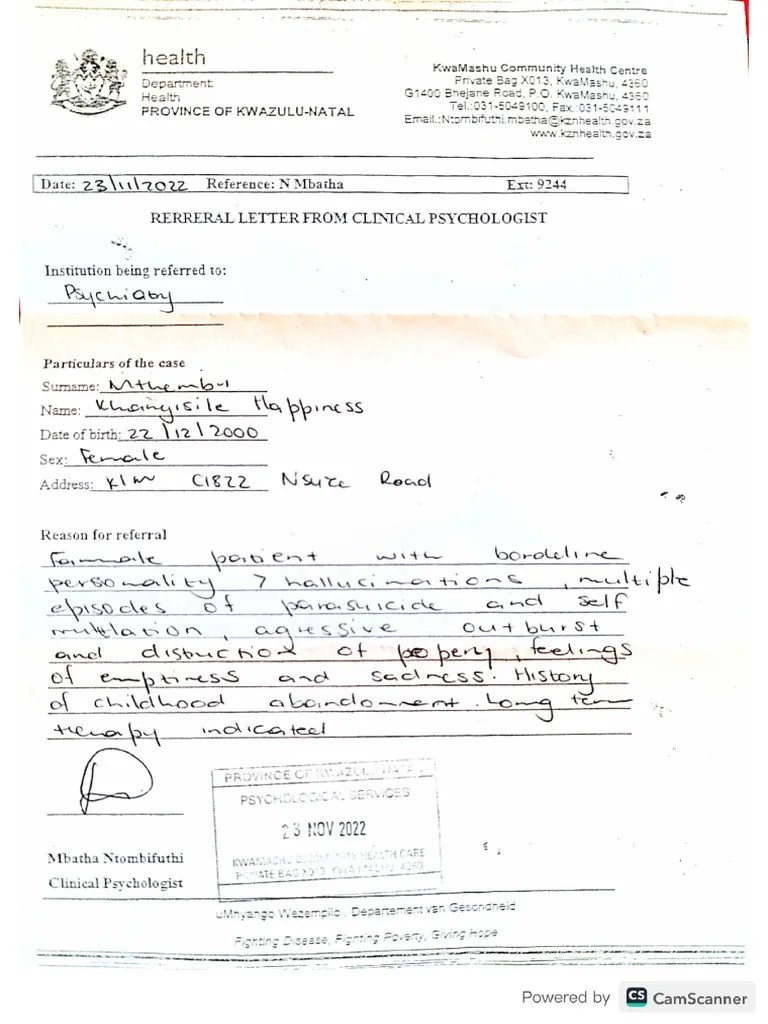 health
Department:
Health
PROVINCE OF KWAZULU-NATAL
KwaMashu Community Health Centre
Private Bag X013, KwaMashu, 4360
G1400 Bhejane Road, P.O. KwaMashu, 4360
Tel.:031-5049100, Fax.:031-5049111
Email.:Ntombifuthi.mbatha@kznhealth.gov.za
www.kznhealth.gov.za
Date: 23/11/2022 Reference: N Mbatha Ext: 9244
RERRERAL LETTER FROM CLINICAL PSYCHOLOGIST
Institution being referred to:
Psychiaty
Particulars of the case
Surname: Mthembu
Name: Khanyisile Happiness
Date of birth: 22/12/2000
Sex: Female
Address: K/M C1822 Road
Reason for referral
Famale patient with bordeline
personality ? hallucinations, multiple
episodes of parasuicide and self
mutilation, agressive outburst
and distruction of popery, feelings
of emptiness and sadness. History
of childhood abaindonment. Long term
therapy indicated
PROVINCE OF KWAZULU NATAL
PSYCHOLOGICAL SERVICES
23 NOV 2022
KWAMASHU COMMUNITY HEALTH CARE
PRIVATE BAG X013, KWAMASHU, 4360
Mbatha Ntombifuthi
Clinical Psychologist
uMnyango Wezempilo . Departement van Gesondheid
Fighting Disease, Fighting Poverty, Giving Hope
Powered by CS CamScanner